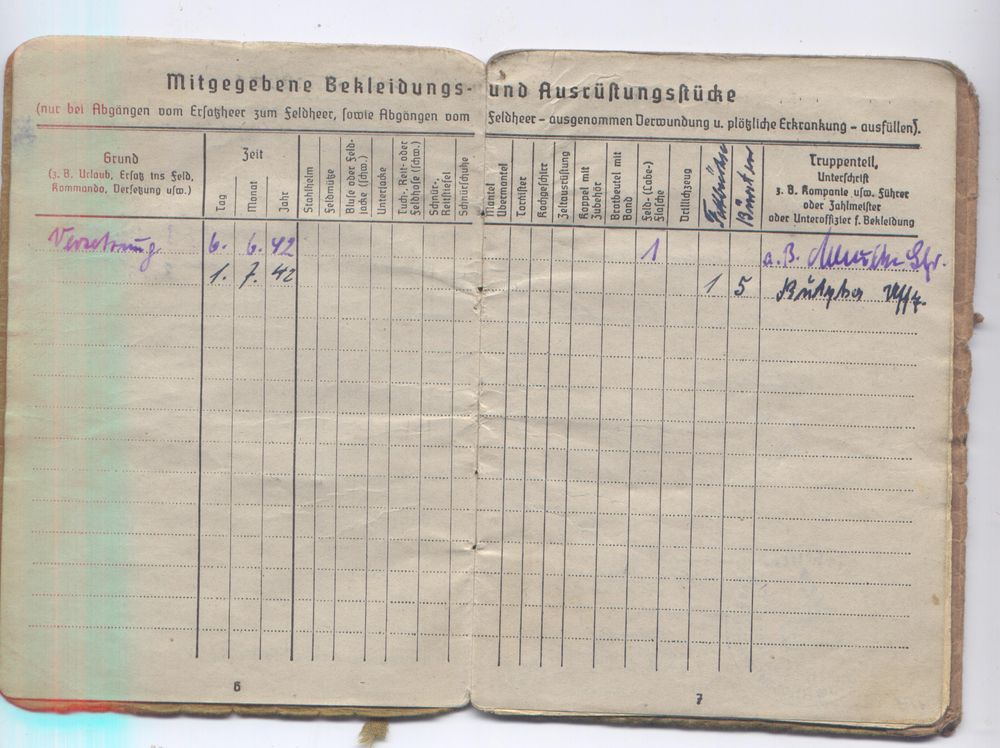 Mitgegebene Bekleidungs- und Ausrüstungsstücke
(nur bei Abgängen vom Ersatzheer zum Feldheer, sowie Abgängen vom Feldheer - ausgenommen Verwundung u. plötzliche Erkrankung - ausfüllen).
Grund
(z. B. Urlaub, Ersatz ins Feld,
Kommando, Versetzung usw.)
Zeit
Tag
Monat
Jahr
Stahlhelm
Feldmütze
Bluse oder Feld-
jacke (schw.)
Unterjacke
Tuch-, Reit- oder
Feldhose (schw.)
Schnür-,
Reitstiefel
Schnürschuhe
Mantel
Übermantel
Tornister
Kochgeschirr
Zeltausrüstung
Koppel mit
Zubehör
Brotbeutel mit
Band
Feld-(Labe-)
Flasche
Drillichzeug
Bürsten
Truppenteil,
Unterschrift
z. B. Kompanie usw. Führer
oder Zahlmeister
oder Unteroffizier f. Bekleidung
Versetzung 6. 6. 42 1 a. B. Gfr.
1. 7. 42 1 5 Uffz.
6
7